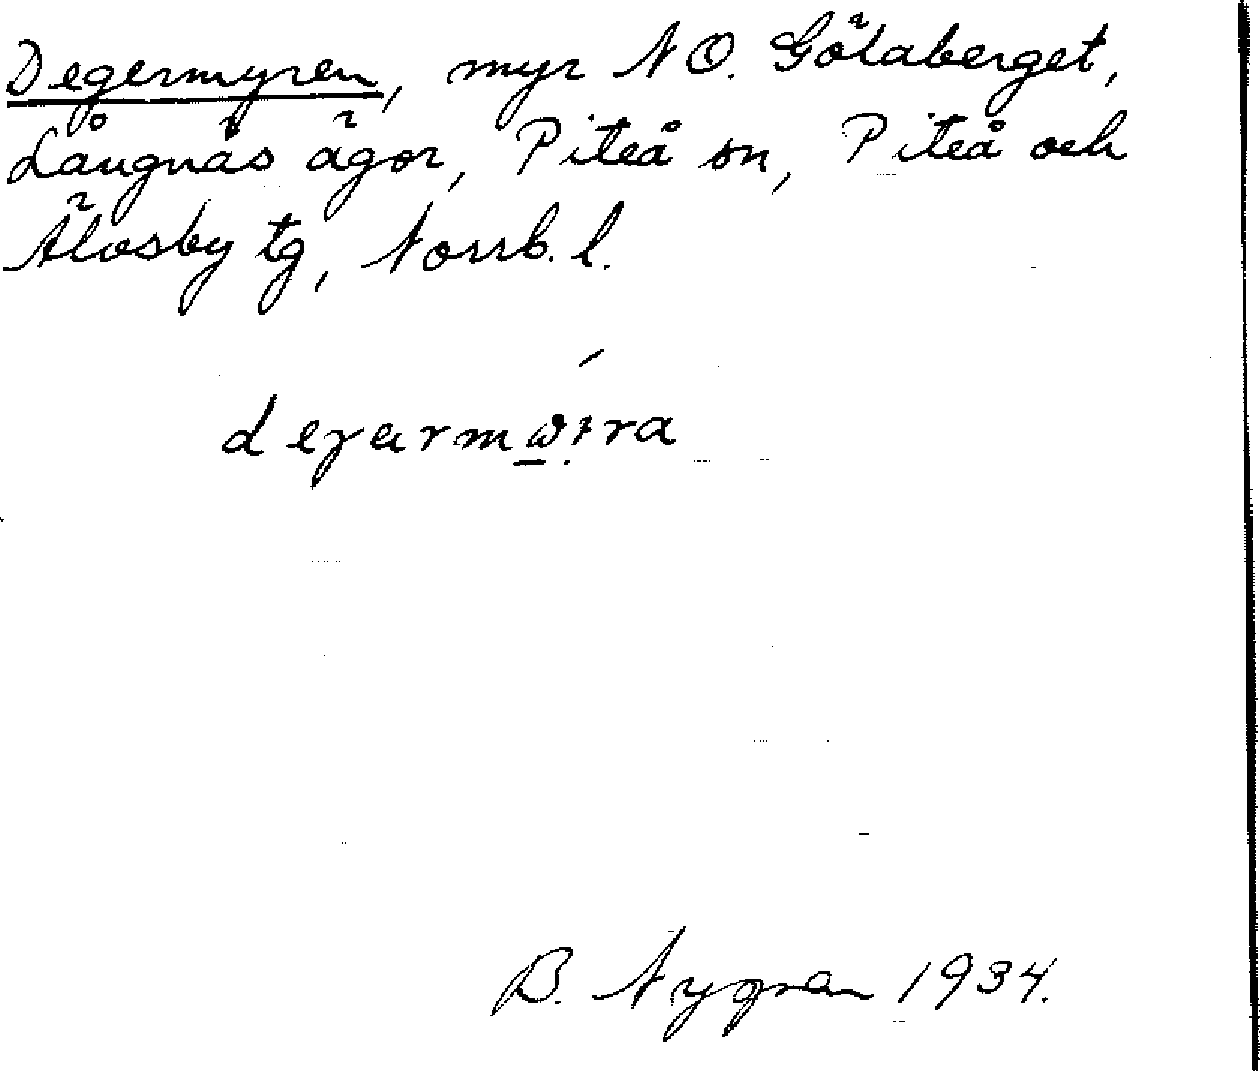 Degermyren, myr NO. Götaberget,
Långnäs ägor, Piteå sn, Piteå och
Älvsby tg, Norrb. l.
B. Nygren 1934.